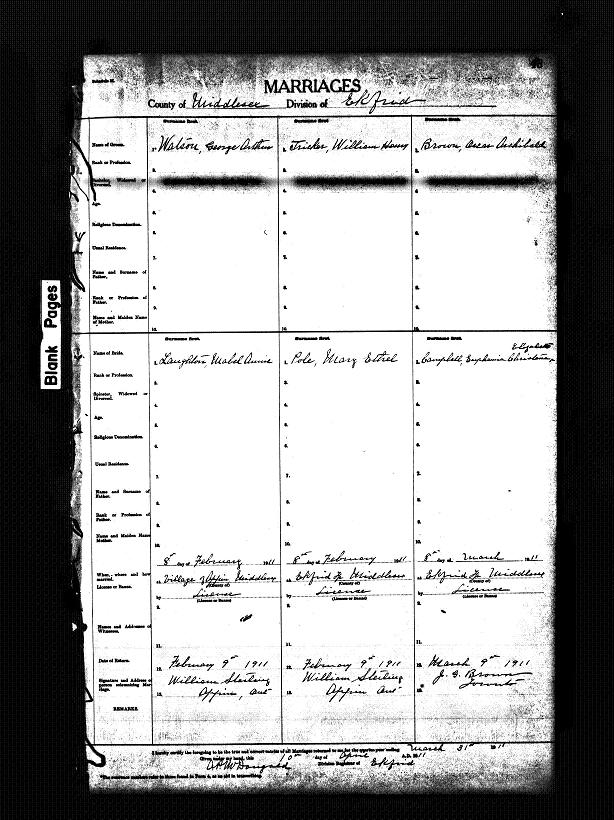 MARRIAGES
County of Middlesex Division of Ekfrid
Surname first. Surname first. Surname first.
Name of Groom. 1. Watson, George Arthur 1. Tricker, William Henry 1. Brown, Oscar Archibald
Rank or Profession.
Age.
Religious Denomination.
Usual Residence.
Name and Surname of Father.
Rank or Profession of Father.
Name and Maiden Name of Mother.
Surname first. Surname first. Surname first.
Elizabeth
Name of Bride. Laughton, Mabel Annie Pole, Mary Ethel Campbell, Euphemia Christena
Rank or Profession.
Spinster, Widowed or Divorced.
Age.
Religious Denomination.
Usual Residence.
Name and Surname of Father.
Rank or Profession of Father.
Name and Maiden Name of Mother.
8th day of February 1911 8th day of February 1911 8th day of March 1911
When, where and how married. Village of Appin Middlesex Ekfrid Tp Middlesex Ekfrid Tp Middlesex
(County of) (County of) (County of)
License or Banns. by License by License by License
(License or Banns) (License or Banns) (License or Banns)
Names and Addresses of Witnesses.
Date of Return. February 9th 1911 February 9th 1911 March 9th 1911
Signature and Address of person solemnizing Marriage. William Sterling William Sterling J. G. Brown
Appin, Ont Appin Ont Toronto
REMARKS
I hereby certify the foregoing to be the true and correct entries of all Marriages returned to me for the quarter year ending March 31st 1911
Given under my hand, this 10th day of April A.D. 1911
Division Registrar of Ekfrid
Blank Pages